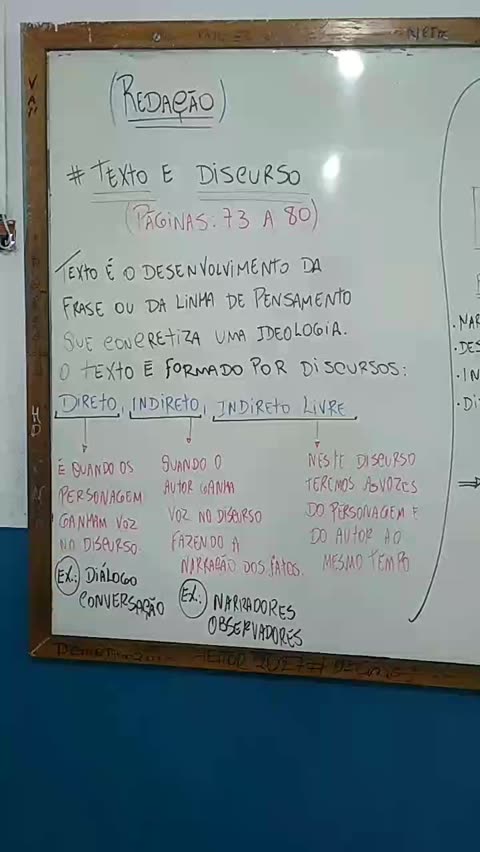 (REDAÇÃO)
# TEXTO E DISCURSO
(PÁGINAS: 73 A 80)
TEXTO É O DESENVOLVIMENTO DA
FRASE OU DA LINHA DE PENSAMENTO
QUE CONCRETIZA UMA IDEOLOGIA.
O TEXTO É FORMADO POR DISCURSOS:
DIRETO, INDIRETO, INDIRETO LIVRE
É QUANDO OS
PERSONAGEM
GANHAM VOZ
NO DISCURSO.
EX.: DIÁLOGO
CONVERSAÇÃO
QUANDO O
AUTOR GANHA
VOZ NO DISCURSO
FAZENDO A
NARRAÇÃO DOS FATOS.
EX.: NARRADORES
OBSERVADORES
NESTE DISCURSO
TEREMOS AS VOZES
DO PERSONAGEM E
DO AUTOR AO
MESMO TEMPO
· NAR
· DES
· IN
· DI